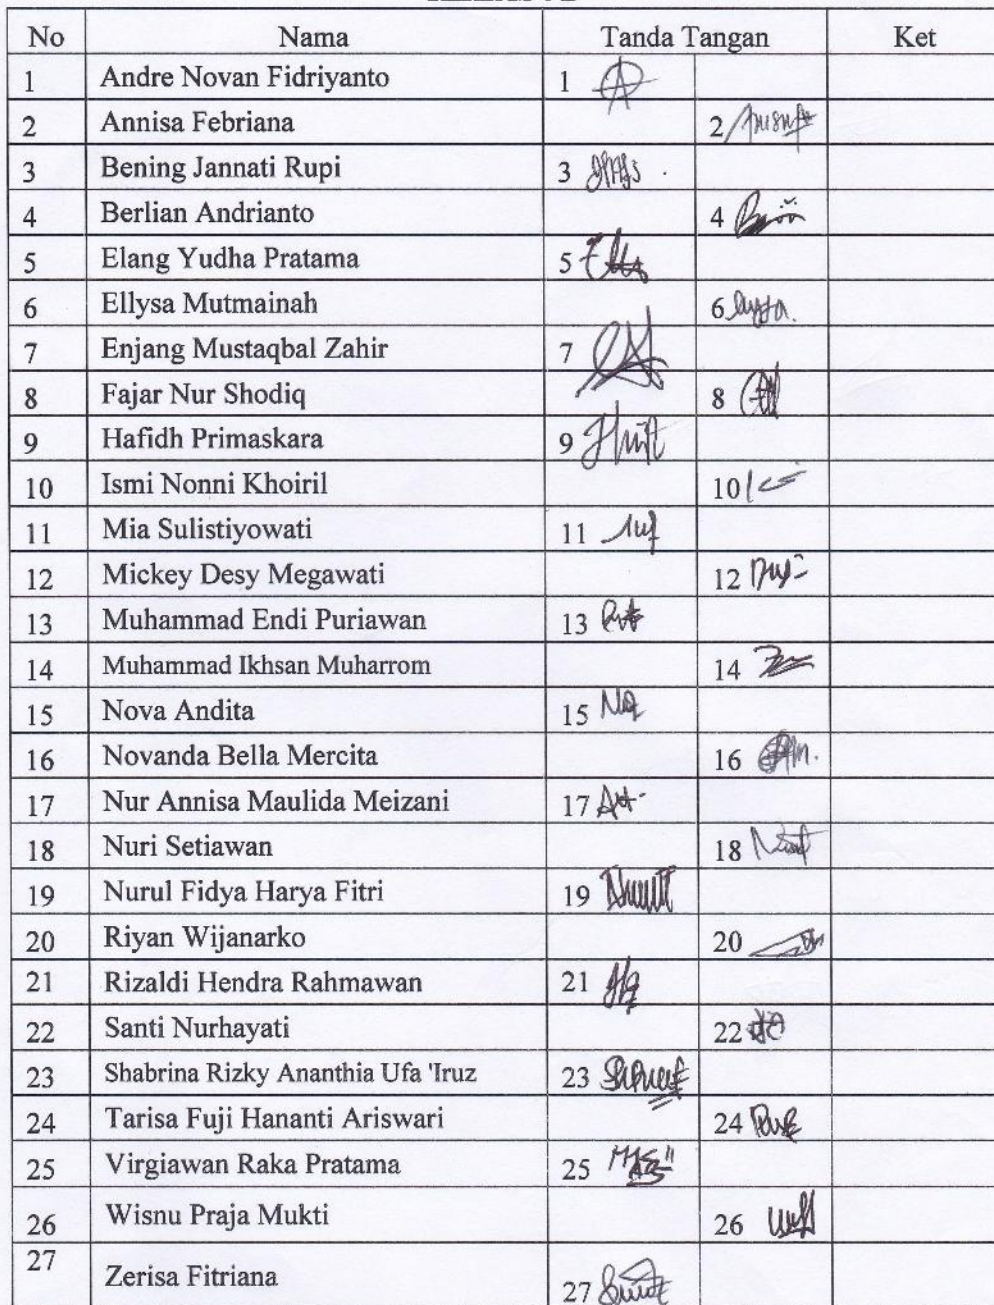 No Nama Tanda Tangan Ket
1 Andre Novan Fidriyanto 1
2 Annisa Febriana 2
3 Bening Jannati Rupi 3
4 Berlian Andrianto 4
5 Elang Yudha Pratama 5
6 Ellysa Mutmainah 6
7 Enjang Mustaqbal Zahir 7
8 Fajar Nur Shodiq 8
9 Hafidh Primaskara 9
10 Ismi Nonni Khoiril 10
11 Mia Sulistiyowati 11
12 Mickey Desy Megawati 12
13 Muhammad Endi Puriawan 13
14 Muhammad Ikhsan Muharrom 14
15 Nova Andita 15
16 Novanda Bella Mercita 16
17 Nur Annisa Maulida Meizani 17
18 Nuri Setiawan 18
19 Nurul Fidya Harya Fitri 19
20 Riyan Wijanarko 20
21 Rizaldi Hendra Rahmawan 21
22 Santi Nurhayati 22
23 Shabrina Rizky Ananthia Ufa 'Iruz 23
24 Tarisa Fuji Hananti Ariswari 24
25 Virgiawan Raka Pratama 25
26 Wisnu Praja Mukti 26
27 Zerisa Fitriana 27